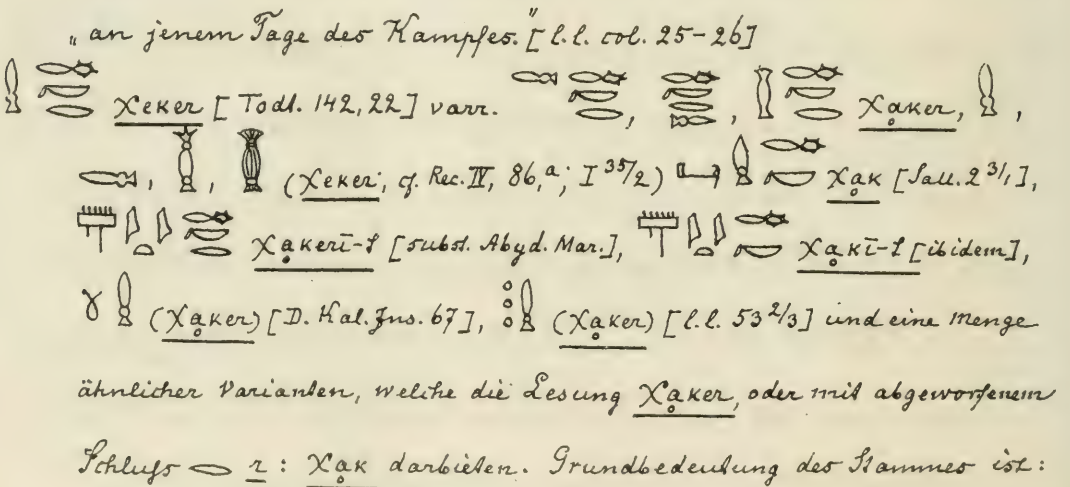 „an jenem Tage des Kampfes.“ [l.l. col. 25-26]
χeker [Todt. 142, 22] varr. , , χḁker, ,
, , (χeker, cf. Rec. IV, 86,a; I 35/2) χḁk [Sall. 2 3/1],
χḁkerī-t [subst. Abyd. Mar.], χḁkī-t [ibidem],
(χḁker) [D. Kal. Ins. 67], (χḁker) [l.l. 53 2/3] und eine menge
ähnlicher Varianten, welche die Lesung χḁker, oder mit abgeworfenem
Schluſs r : χḁk darbieten. Grundbedeutung des Stammes ist: